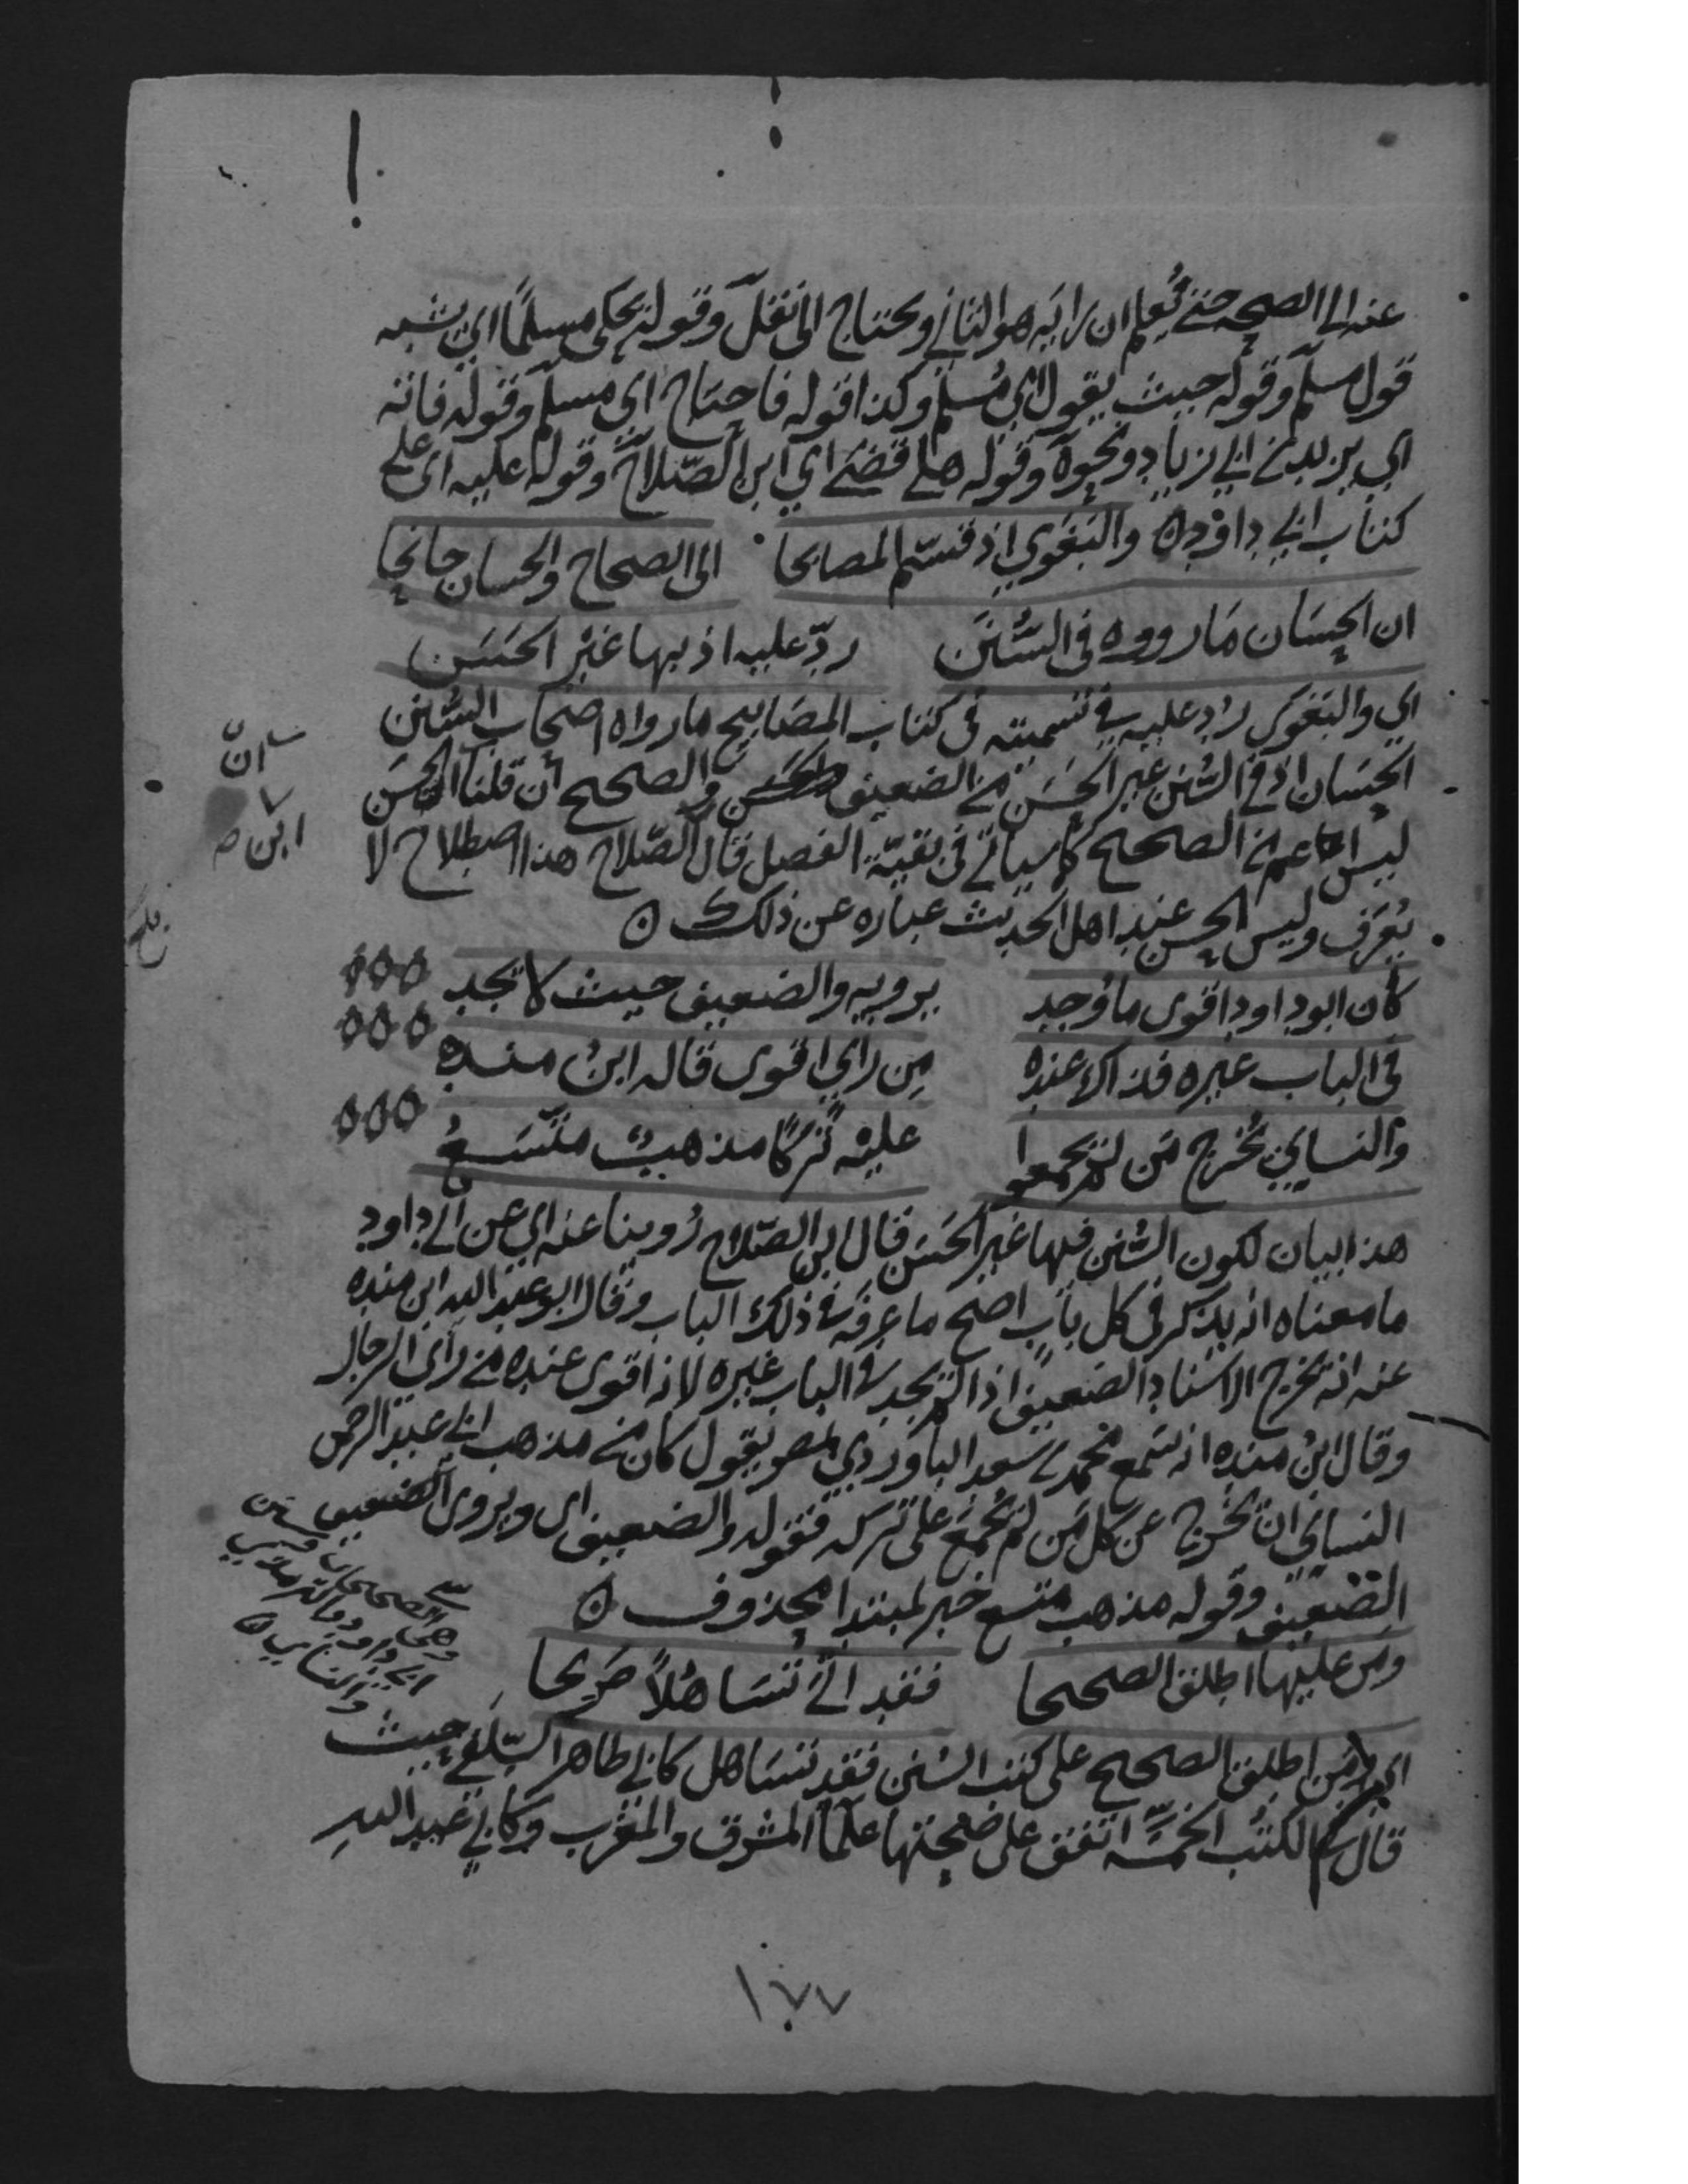 عنه الى الصحه حتى يُعلم ان رايَه هو الثاني ويحتاج الى نقل وقوله يحكى مسلمًا اي يشبه
قول مسلم وقوله حيث يقول اي مُسلم وكذا قوله فاحتاج اي مسلم وقوله فانه
اي يزيد بن ابي زياد ونحوه وقوله هلا قضى اي ابن الصّلاح وقوله عليه اي على
كتاب ابي داوود ۞ والبغوي اذ قسّم المصابحا الى الصحاح والحسان جانحا
ان الحِسَان مَا رووه في السُّنَن ردّ عليه اذ بها غيْر الحَسَن
اي والبغوي رُد عليه في تسميته في كتاب المصَابيح ما رواه اصحاب السُّنن
الحِسَان اذ في السُّنن غير الحَسَن من الضعيف والصحيح ان قلنا الحسَن
ليس اعم من الصحيح كما سياتي في بقيّة الفصل قال الصّلاح هذا اصطلاح لا
يُعرَف وليس الحسن عند اهل الحديث عباره عن ذلك ۞
كان ابو داود اقوى ما وُجد يرويه والضعيف حيث لا يجد
في الباب غيره فذاك عنده مِن رأي اقوى قاله ابنُ منده
والنساءي يُخْرج مَن لم يجمعوا عليْه تركًا مذهبٌ متّسَعُ
هذا بيان لكون السُّنن فيها غير الحَسَن قال ابن الصّلاح رُوينا عنه اي عن ابي داود
ما معناه انه يذكر في كل بابٍ اصح ما عرفه في ذلك الباب وقال ابو عبد الله ابن منده
عنه انه يخرج الاسناد الضعيف اذا لم يجد في الباب غيره لانه اقوى عنده من رأي الرجال
وقال ابنُ منده انه سَمع محمد بن سعد الباوردي بمصر يقول كان من مذهب ابي عبد الرحمن
النساني ان يُخرج عن كل مَن لم يُجمَع على تركه فقوله والضعيف اى ويروى الضعيف
الضعيف وقوله مذهب متسع خبر لمبتدا محذوف ۞
ومن عليها اطلق الصحيحا فقد اتى تسَاهُلاً صَرِيحا
اي ومَن اطلق الصحيح على كتب السُنن فقد تسَاهل كابي طاهر السِّلَفي حيث
قال في الكتب الخمسَة اتفق على صحتها علمآ المشرق والمغرب وكابي عَبد اللهِ
انّ
ابن صح
وهى الصحيحان وسنن
ابي داوود والترمذي
والنساي ۞
١٧٧